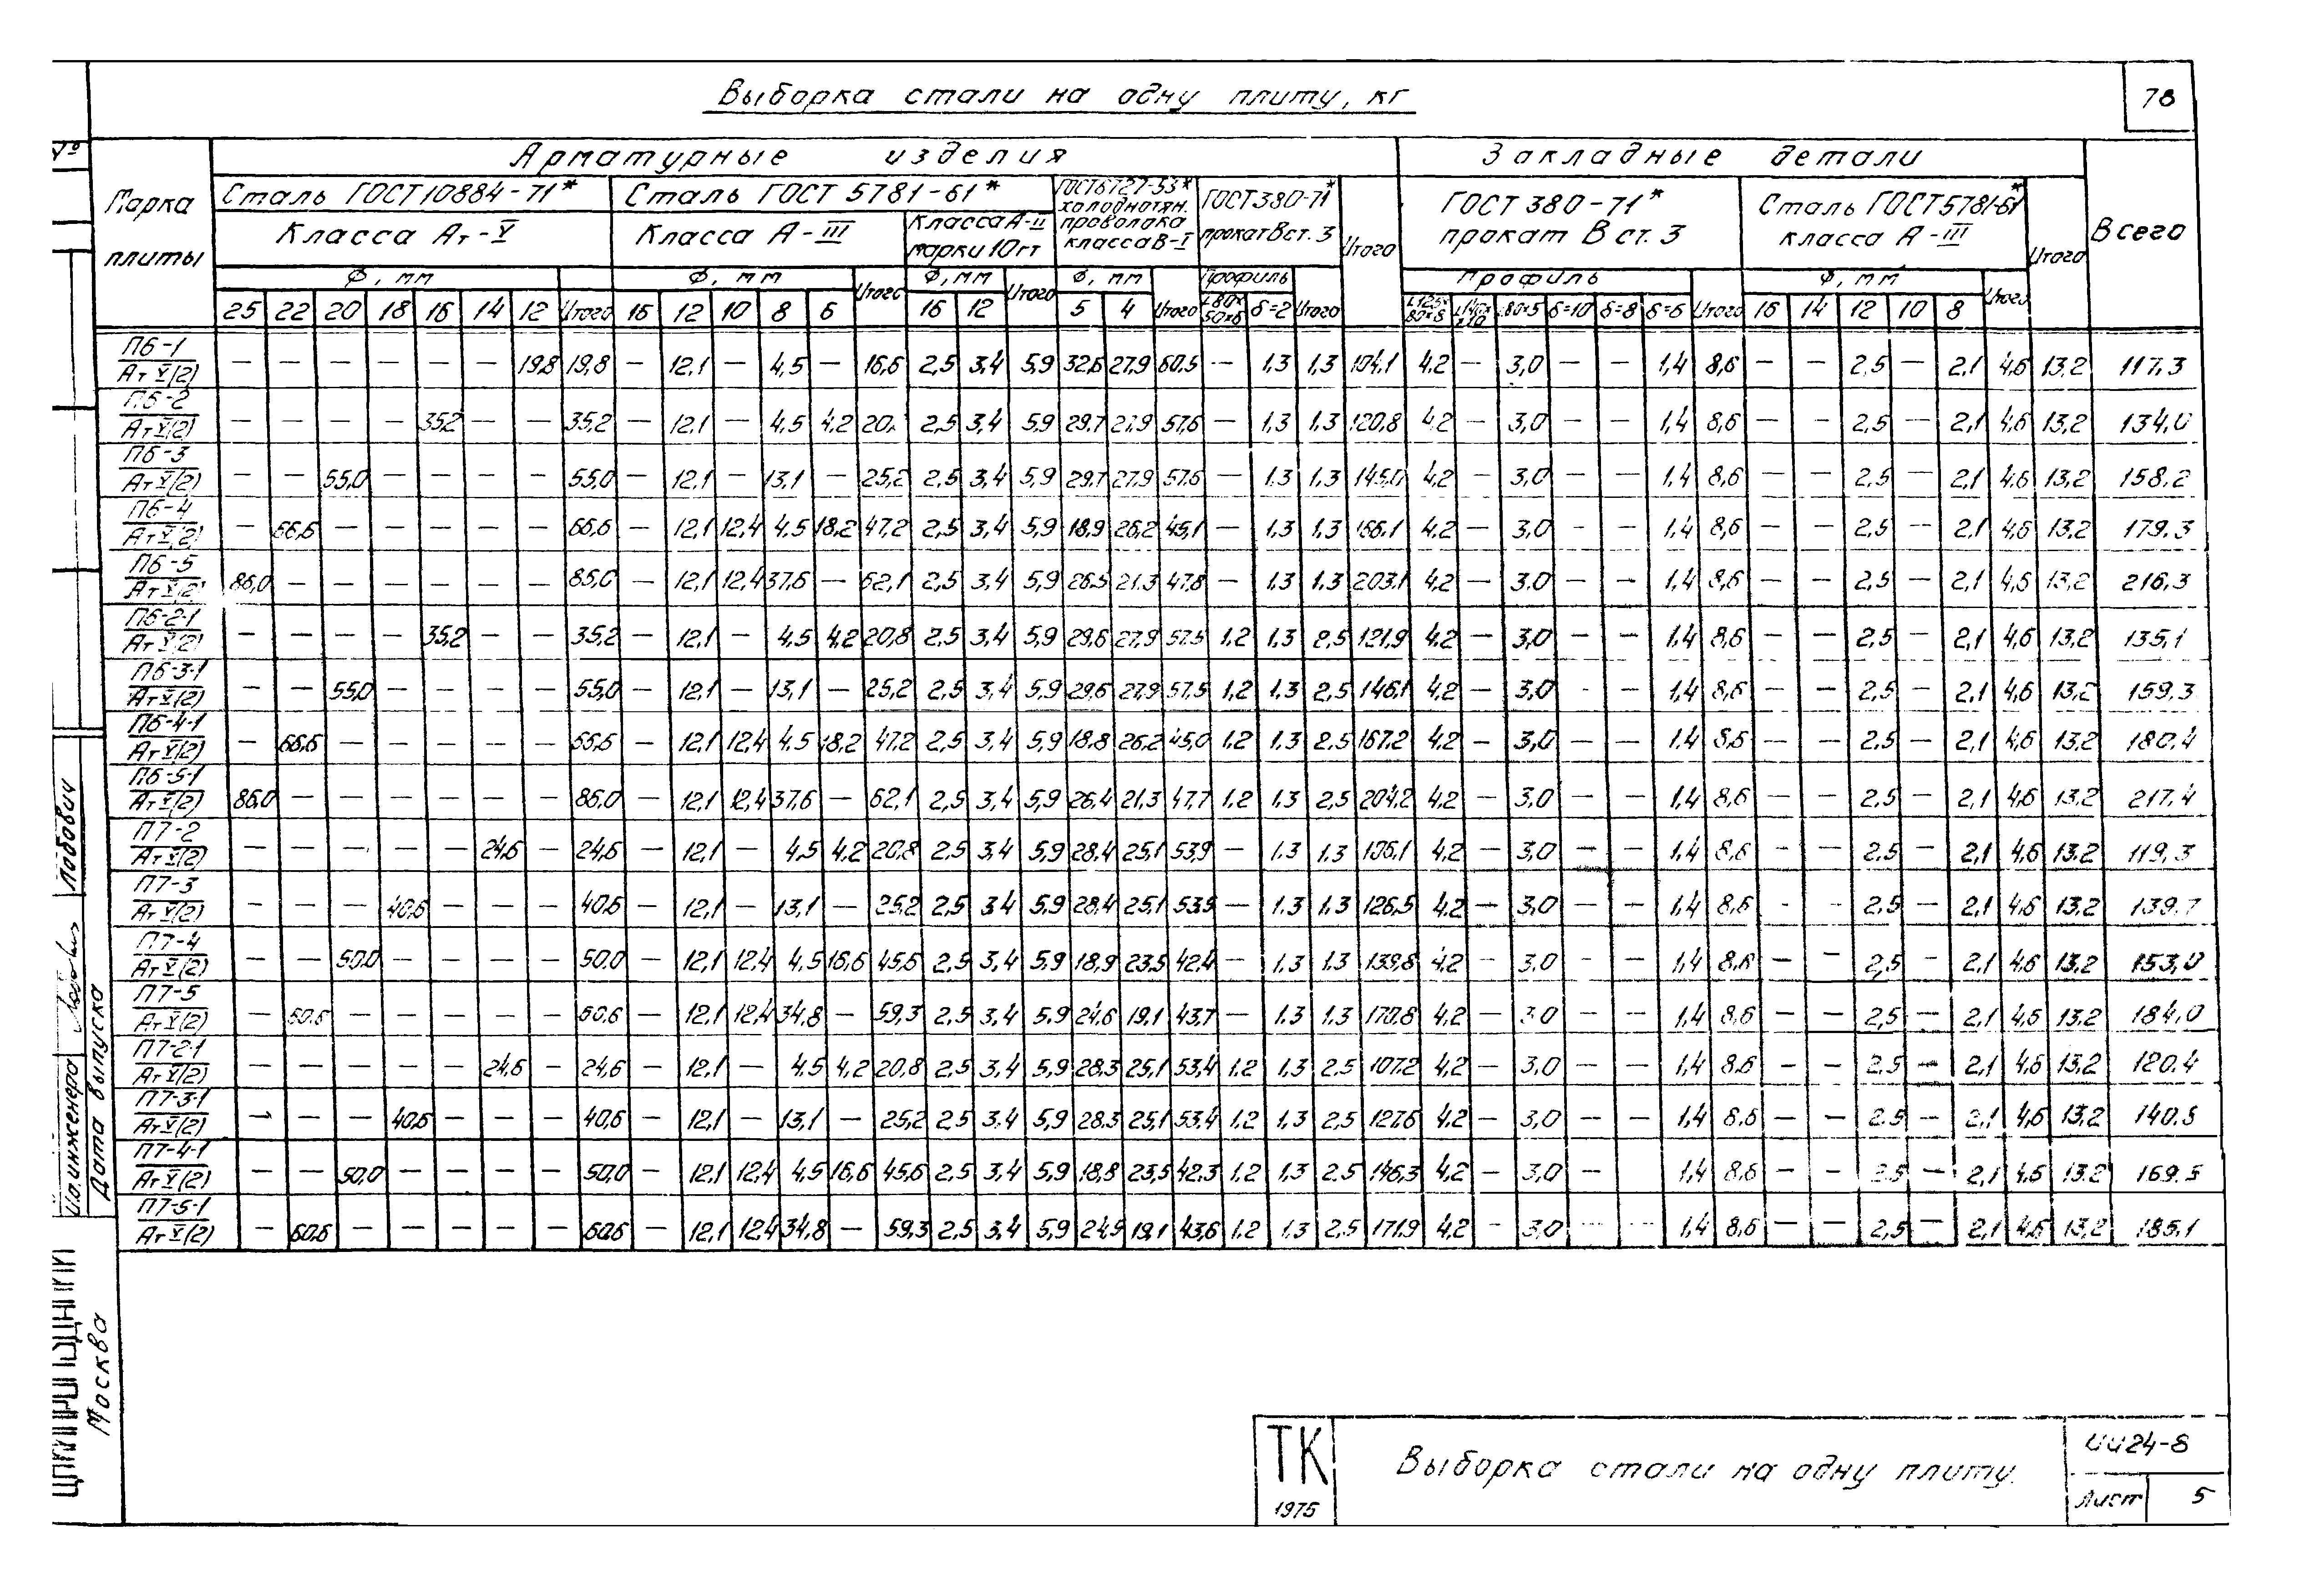 Выборка стали на одну плиту, кг
78
Марка плиты
Арматурные изделия
Закладные детали
Всего
Сталь ГОСТ 10884-71*
Сталь ГОСТ 5781-61*
ГОСТ 6727-53* холоднотян. проволока класса В-I
ГОСТ 380-71* прокат В ст. 3
Итого
ГОСТ 380-71* прокат В ст. 3
Сталь ГОСТ 5781-61* класса А-III
Итого
Класса Ат-V
Класса А-III
Класса А-II марки 10гт
Ф, мм
Ф, мм
Итого
Ф, мм
Итого
Ф, мм
Профиль
Профиль
Ф, мм
Итого
25 22 20 18 16 14 12 Итого 16 12 10 8 6 16 12 5 4 Итого L80×50×6 δ=2 Итого L125×80×8 80×5 δ=10 δ=8 δ=6 Итого 16 14 12 10 8
П6-1
Ат V(2) — — — — — — 19,8 19,8 — 12,1 — 4,5 — 16,6 2,5 3,4 5,9 32,6 27,9 60,5 — 1,3 1,3 104,1 4,2 — 3,0 — — 1,4 8,6 — — 2,5 — 2,1 4,6 13,2 117,3
П6-2
Ат V(2) — — — — 35,2 — — 35,2 — 12,1 — 4,5 4,2 2,5 3,4 5,9 29,7 27,9 57,6 — 1,3 1,3 120,8 4,2 — 3,0 — — 1,4 8,6 — — 2,5 — 2,1 4,6 13,2 134,0
П6-3
Ат V(2) — — 55,0 — — — — 55,0 — 12,1 — 13,1 — 25,2 2,5 3,4 5,9 29,7 27,9 57,6 — 1,3 1,3 145,0 4,2 — 3,0 — — 1,4 8,6 — — 2,5 — 2,1 4,6 13,2 158,2
П6-4
Ат V(2) — 66,6 — — — — — 66,6 — 12,1 12,4 4,5 18,2 47,2 2,5 3,4 5,9 18,9 26,2 45,1 — 1,3 1,3 166,1 4,2 — 3,0 — — 1,4 8,6 — — 2,5 — 2,1 4,6 13,2 179,3
П6-5
Ат V(2) 86,0 — — — — — — 86,0 — 12,1 12,4 37,6 — 62,1 2,5 3,4 5,9 26,5 21,3 47,8 — 1,3 1,3 203,1 4,2 — 3,0 — — 1,4 8,6 — — 2,5 — 2,1 4,6 13,2 216,3
П6-2-1
Ат V(2) — — — — 35,2 — — 35,2 — 12,1 — 4,5 4,2 20,8 2,5 3,4 5,9 29,6 27,9 57,5 1,2 1,3 2,5 121,9 4,2 — 3,0 — — 1,4 8,6 — — 2,5 — 2,1 4,6 13,2 135,1
П6-3-1
Ат V(2) — — 55,0 — — — — 55,0 — 12,1 — 13,1 — 25,2 2,5 3,4 5,9 29,6 27,9 57,5 1,2 1,3 2,5 146,1 4,2 — 3,0 - — 1,4 8,6 — — 2,5 — 2,1 4,6 13,2 159,3
П6-4-1
Ат V(2) — 66,6 — — — — — 66,6 — 12,1 12,4 4,5 18,2 47,2 2,5 3,4 5,9 18,8 26,2 45,0 1,2 1,3 2,5 167,2 4,2 — 3,0 — — 1,4 8,6 — — 2,5 — 2,1 4,6 13,2 180,4
П6-5-1
Ат V(2) 86,0 — — — — — — 86,0 — 12,1 12,4 37,6 — 62,1 2,5 3,4 5,9 26,4 21,3 47,7 1,2 1,3 2,5 204,2 4,2 — 3,0 — — 1,4 8,6 — — 2,5 — 2,1 4,6 13,2 217,4
П7-2
Ат V(2) — — — — — 24,6 — 24,6 — 12,1 — 4,5 4,2 20,8 2,5 3,4 5,9 28,4 25,1 53,9 — 1,3 1,3 106,1 4,2 — 3,0 — — 1,4 8,6 — — 2,5 — 2,1 4,6 13,2 119,3
П7-3
Ат V(2) — — — 40,6 — — — 40,6 — 12,1 — 13,1 — 25,2 2,5 3,4 5,9 28,4 25,1 53,5 — 1,3 1,3 126,5 4,2 — 3,0 — — 1,4 8,6 - - 2,5 — 2,1 4,6 13,2 139,7
П7-4
Ат V(2) — — 50,0 — — — — 50,0 — 12,1 12,4 4,5 16,6 45,6 2,5 3,4 5,9 18,9 23,5 42,4 — 1,3 1,3 139,8 4,2 — 3,0 - — 1,4 8,6 — — 2,5 — 2,1 4,6 13,2 153,0
П7-5
Ат V(2) — 60,6 — — — — — 60,6 — 12,1 12,4 34,8 — 59,3 2,5 3,4 5,9 24,6 19,1 43,7 — 1,3 1,3 170,8 4,2 — 3,0 - — 1,4 8,6 — — 2,5 — 2,1 4,6 13,2 184,0
П7-2-1
Ат V(2) — — — — — 24,6 — 24,6 — 12,1 — 4,5 4,2 20,8 2,5 3,4 5,9 28,3 25,1 53,4 1,2 1,3 2,5 107,2 4,2 — 3,0 — — 1,4 8,6 — — 2,5 — 2,1 4,6 13,2 120,4
П7-3-1
Ат V(2) — — — 40,6 — — — 40,6 — 12,1 — 13,1 — 25,2 2,5 3,4 5,9 28,3 25,1 53,4 1,2 1,3 2,5 127,6 4,2 — 3,0 — — 1,4 8,6 — — 2,5 — 2,1 4,6 13,2 140,8
П7-4-1
Ат V(2) — — 50,0 — — — — 50,0 — 12,1 12,4 4,5 16,6 45,6 2,5 3,4 5,9 18,8 23,5 42,3 1,2 1,3 2,5 146,3 4,2 — 3,0 — 1,4 8,6 — — 2,5 — 2,1 4,6 13,2 169,5
П7-5-1
Ат V(2) — 60,6 — — — — — 60,6 — 12,1 12,4 34,8 — 59,3 2,5 3,4 5,9 24,5 19,1 43,6 1,2 1,3 2,5 171,9 4,2 — 3,0 — — 1,4 8,6 — — 2,5 — 2,1 4,6 13,2 185,1
Лобович
И.о.инженера
Дата выпуска
Москва
ТК
1975
Выборка стали на одну плиту.
ИИ24-8
Лист 5